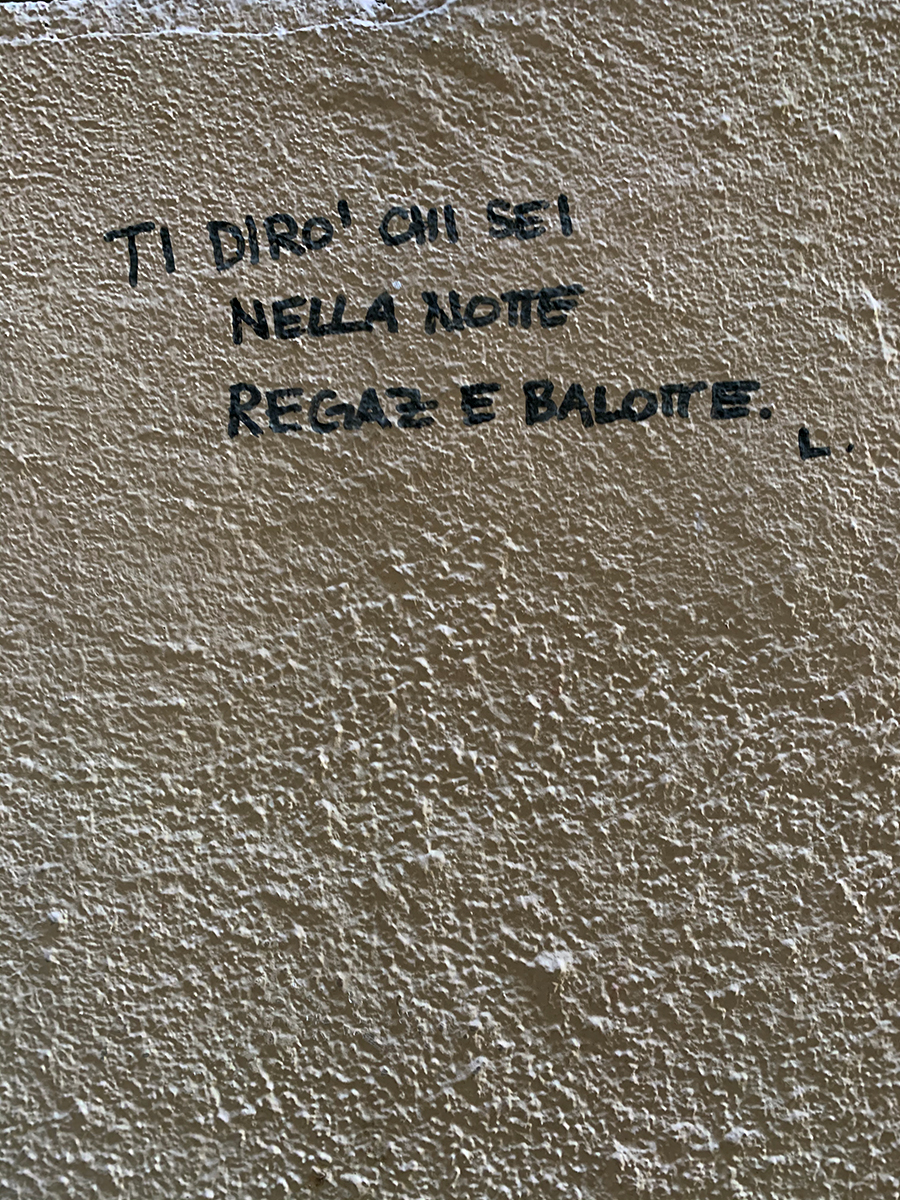 TI DIRO' CHI SEI
NELLA NOTTE
REGAZ E BALOTTE.
L.